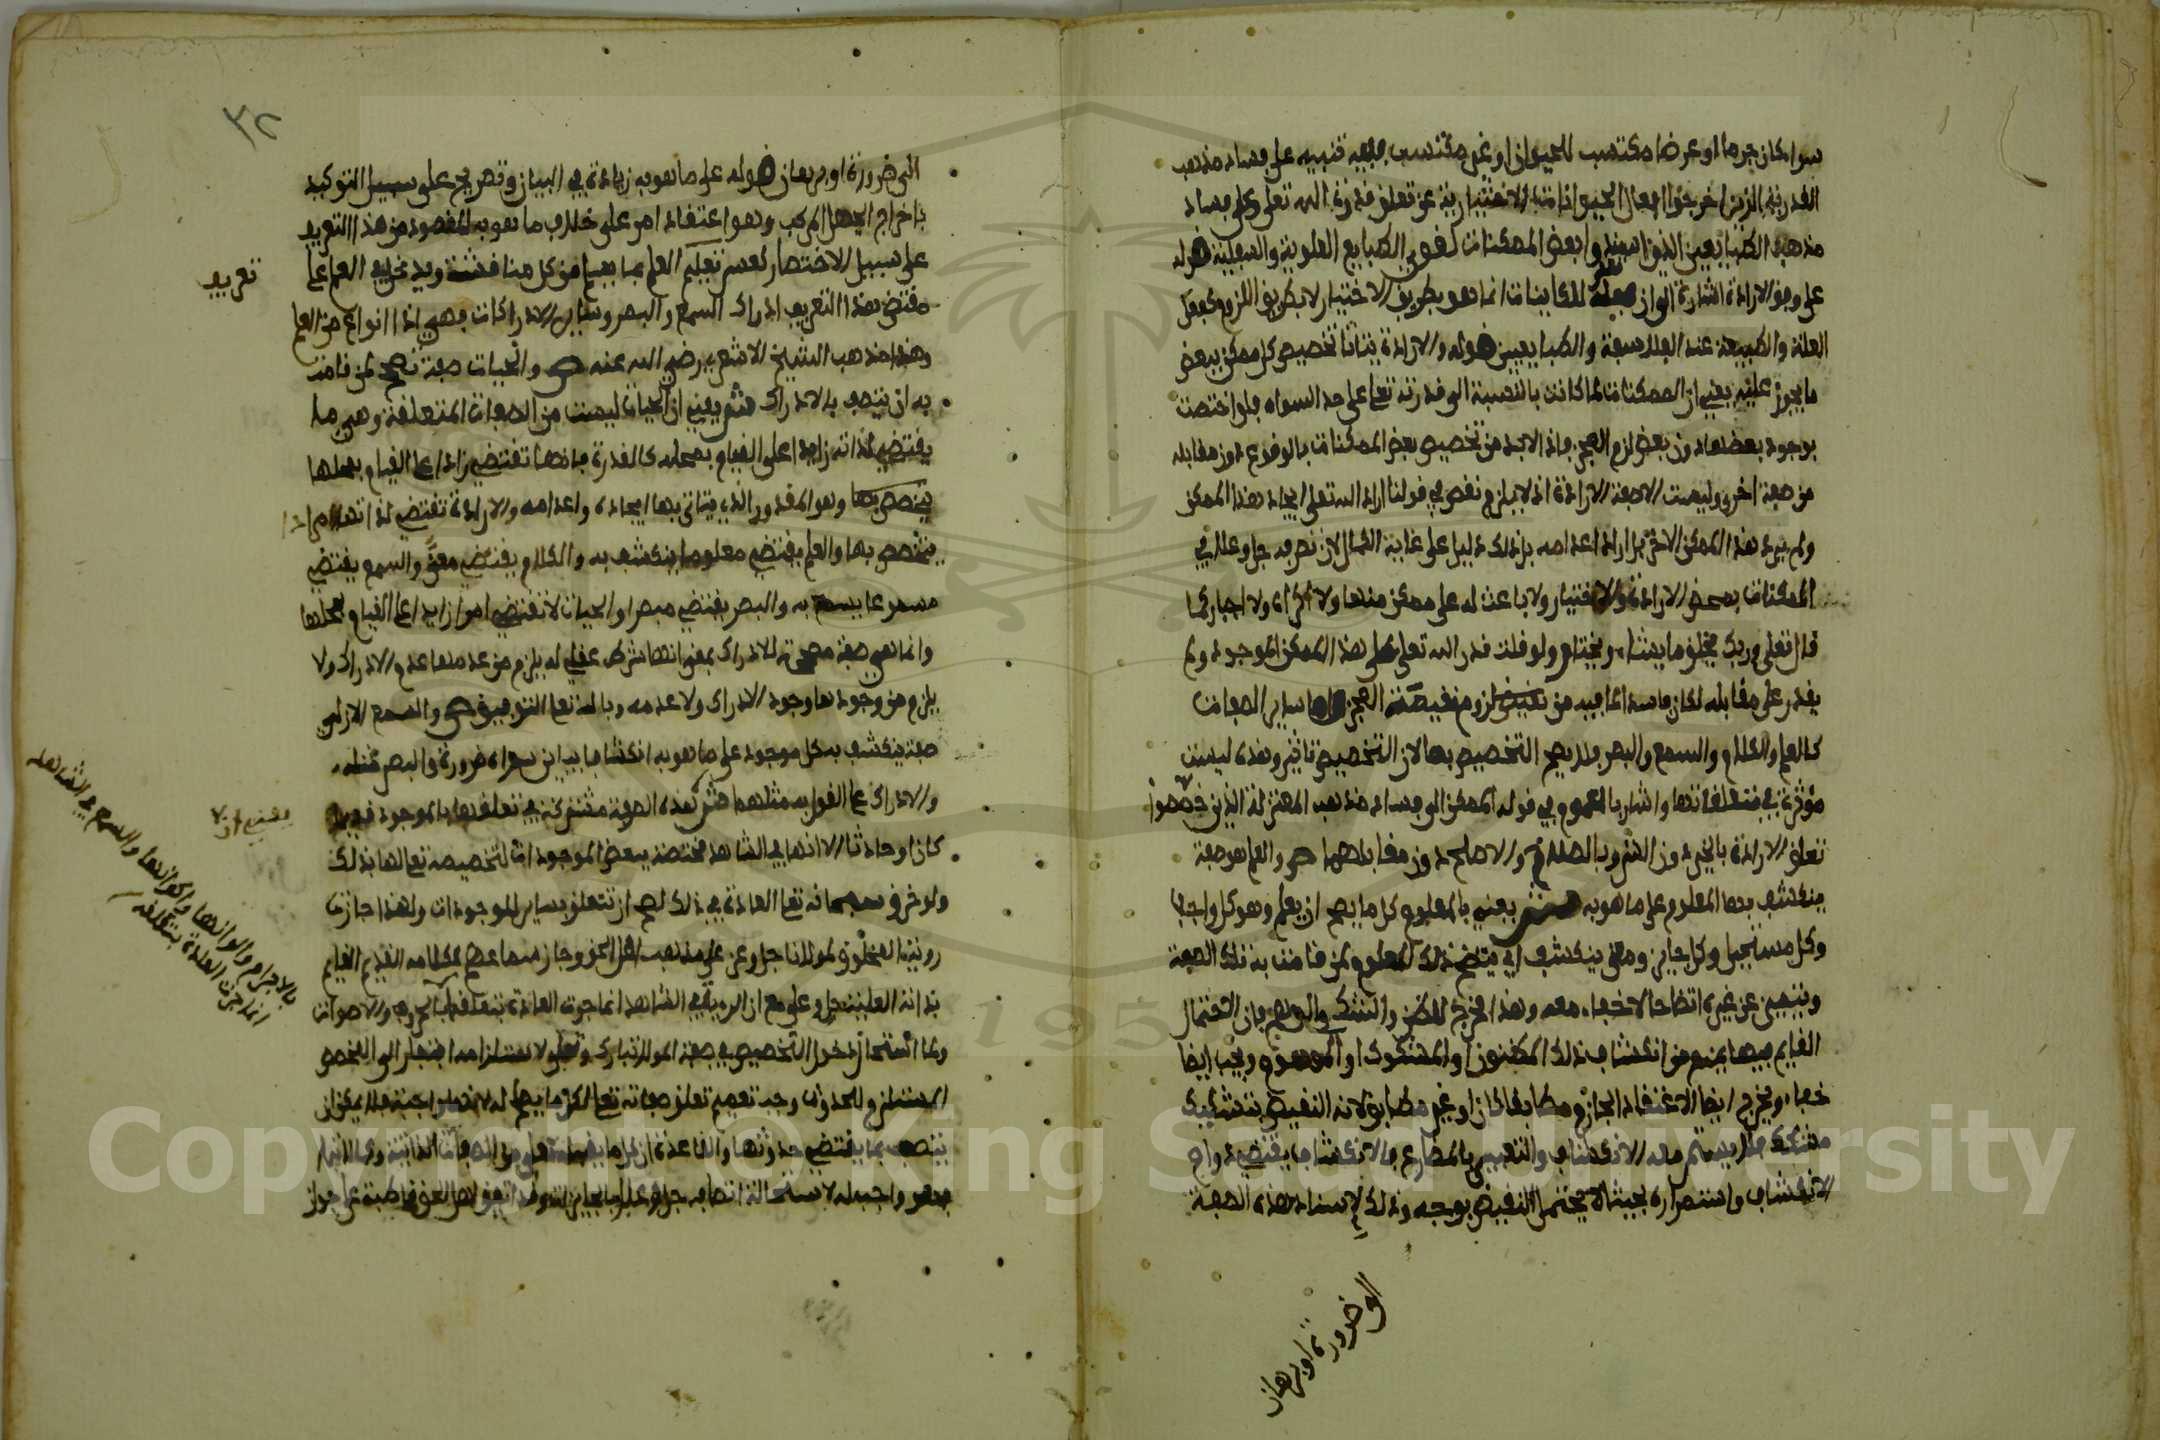 سواء كان جرما او عرضا مكتسب للحيوان او غير مكتسب ففيه تنبيه على فساد مذهب
القدرية الذين اخرجوا افعال الحيوانات الاختيارية عن تعلق قدرة الله تعلى وعلى فساد
مذهب الطبايعين الذين اسندوا بعض الممكنات لقوى الطبايع العلوية والسفلية قوله
على وفق الارادة اشارة الى ان فعله تعلى للكاينات انما هو بطريق الاختيار لا بطريق اللزوم كفعل
العلة والطبيعة عند الفلاسفة والطبايعيين قوله والارادة يتاتا تخصيص كل ممكن ببعض
ما يجوز عليه يعني ان الممكنات لما كانت بالنسبة الى قدرته تعلى على حد السواء فلو اختصت
بوجود بعضها دون بعض لزم العجز فاذا لابد من تخصيص بعض الممكنات بالوقوع دون مقابله
من صفة اخرى وليست الا صفة الارادة اذ لا يلزم نقص في قولنا اراد الله تعلى ايجاد هذا الممكن
ولم يرد هذا الممكن الاخر بل اراد اعدامه بل ذلك دليل على غاية الكمال لان تصرفه جل وعلا في
الممكنات بمحض الارادة والاختيار ولا باعث له على ممكن منها ولا اكراه ولا اجبار كما
قال تعلى وربك يخلق ما يشاء ويختار ولو قلت قدر الله تعلى على هذا الممكن الموجود ولم
يقدر على مقابله لكان فاسدا لما فيه من لزوم نقيصة العجز واما ساير الصفات
كالعلم والكلام والسمع والبصر فلا يصح التخصيص بها لان التخصيص تاثير وهذه ليست
مؤثرة في متعلقاتها واشار بالعموم في قوله الممكن الى فساد مذهب المعتزلة الذين خصصوا
تعلق الارادة بالخير دون الشر وبالصلاح والاصلح دون مقابلهما ص والعلم هو صفة
ينكشف بها المعلوم على ما هو به ش يعني بالمعلوم كل ما يصح ان يعلم وهو كل واجب
وكل مستحيل وكل جايز ومعنى ينكشف اي يتضح ذلك المعلوم لمن قامت به تلك الصفة
ويتميز عن غيره اتضاحا لا خفاء معه وهذا مخرج للظن والشك والوهم فان الاحتمال
القايم فيها يمنع من انكشاف ذلك المظنون او المشكوك او الموهوم ويجب ايضا
خفاء ويخرج ايضا الاعتقاد الجازم مطابقا كان او غير مطابق لانه النقيض بتشكيك
مشكك فلا يستمر معه الانكشاف والتعبير بالمضارع في الانكشاف يقتضي دوام
الانكشاف واستمراره بحيث لا يحتمل النقيض بوجه وذلك لاستناد هذه الصفة
الى ضرورة او برهان
٣٢
الى ضرورة او برهان قوله على ما هو به زيادة في البيان وتصريح على سبيل التوكيد
باخراج الجهل المركب وهو اعتقاد امر على خلاف ما هو به المقصود من هذا التعريف
على سبيل الاختصار لعسر تعليم العلم بما يسلم من كل مناقشة ويدخل في العلم على
تعريف
مقتضى هذا التعريف ادراك السمع والبصر وساير الادراكات فهي اذا انواع من العلم
وهذا مذهب الشيخ الاشعري رضي الله عنه ص والحيات صفة تصحح لمن قامت
به ان يتصف بالادراك ش يعني ان الحيات ليست من الصفات المتعلقة وهي ما
يقتضي لذاته زايدا على القيام بمحله كالقدرة فانها تقتضي زايدا على القيام بمحلها
يتخصص بها وهو المقدور الذي يتاتى بها ايجاده واعدامه والارادة تقتضي لذاتها مرادا
يتخصص بها والعلم يقتضي معلوما ينكشف به والكلام يقتضي معنى والسمع يقتضي
مسموعا يسمع به والبصر يقتضي مبصرا والحيات لا تقتضي امرا زايدا على القيام بمحلها
وانما هي صفة مصححة للادراك بمعنى انها شرط عقلي له يلزم من عدمها عدم الادراك ولا
يلزم من وجودها وجود الادراك ولا عدمه وبالله تعلى التوفيق ص والسمع الازلي
صفة ينكشف به كل موجود على ما هو به انكشافا يباين سواه ضرورة والبصر مثله
والادراك على القول به مثلهما ش هذه الصفة مشتركة في تعلقها بالموجود قديما
كان او حادثا الا انها في الشاهد مختصة ببعض الموجودات لتخصيصه تعالى لها بذلك
يعني ان
بالاجرام والوانها واكوانها والسمع في الشاهد
انما جرت العادة بتعلقه
ولو خرق سبحانه تعلى العادة في ذلك لصح ان تتعلق بساير الموجودات ولهذا جازت
روية المخلوق لمولانا جل وعز على مذهب اهل الحق وجاز سماعهم لكلامه القديم القايم
بذاته العلية جل وعلى مع ان الروية في الشاهد انما جرت العادة بتعلقها بالحروف والاصوات
ولما استحال دخول التخصيص في صفة المولى تبارك وتعلى لاستلزامه افتقار الى المخصص
المستلزم للحدوث وجب تعميم تعلق صفاته تعلى لكل ما يصلح له لانها واجبة فلا يمكن ان
يتصف بما يقتضي حدوثها والقاعدة ان كل ما يقبله تعلى من الصفات الذاتية والكمالات
فهو واجب له لاستحالة اتصافه جل وعلى بالجايز وقد اتفق اهل الحق قاطبة على جواز